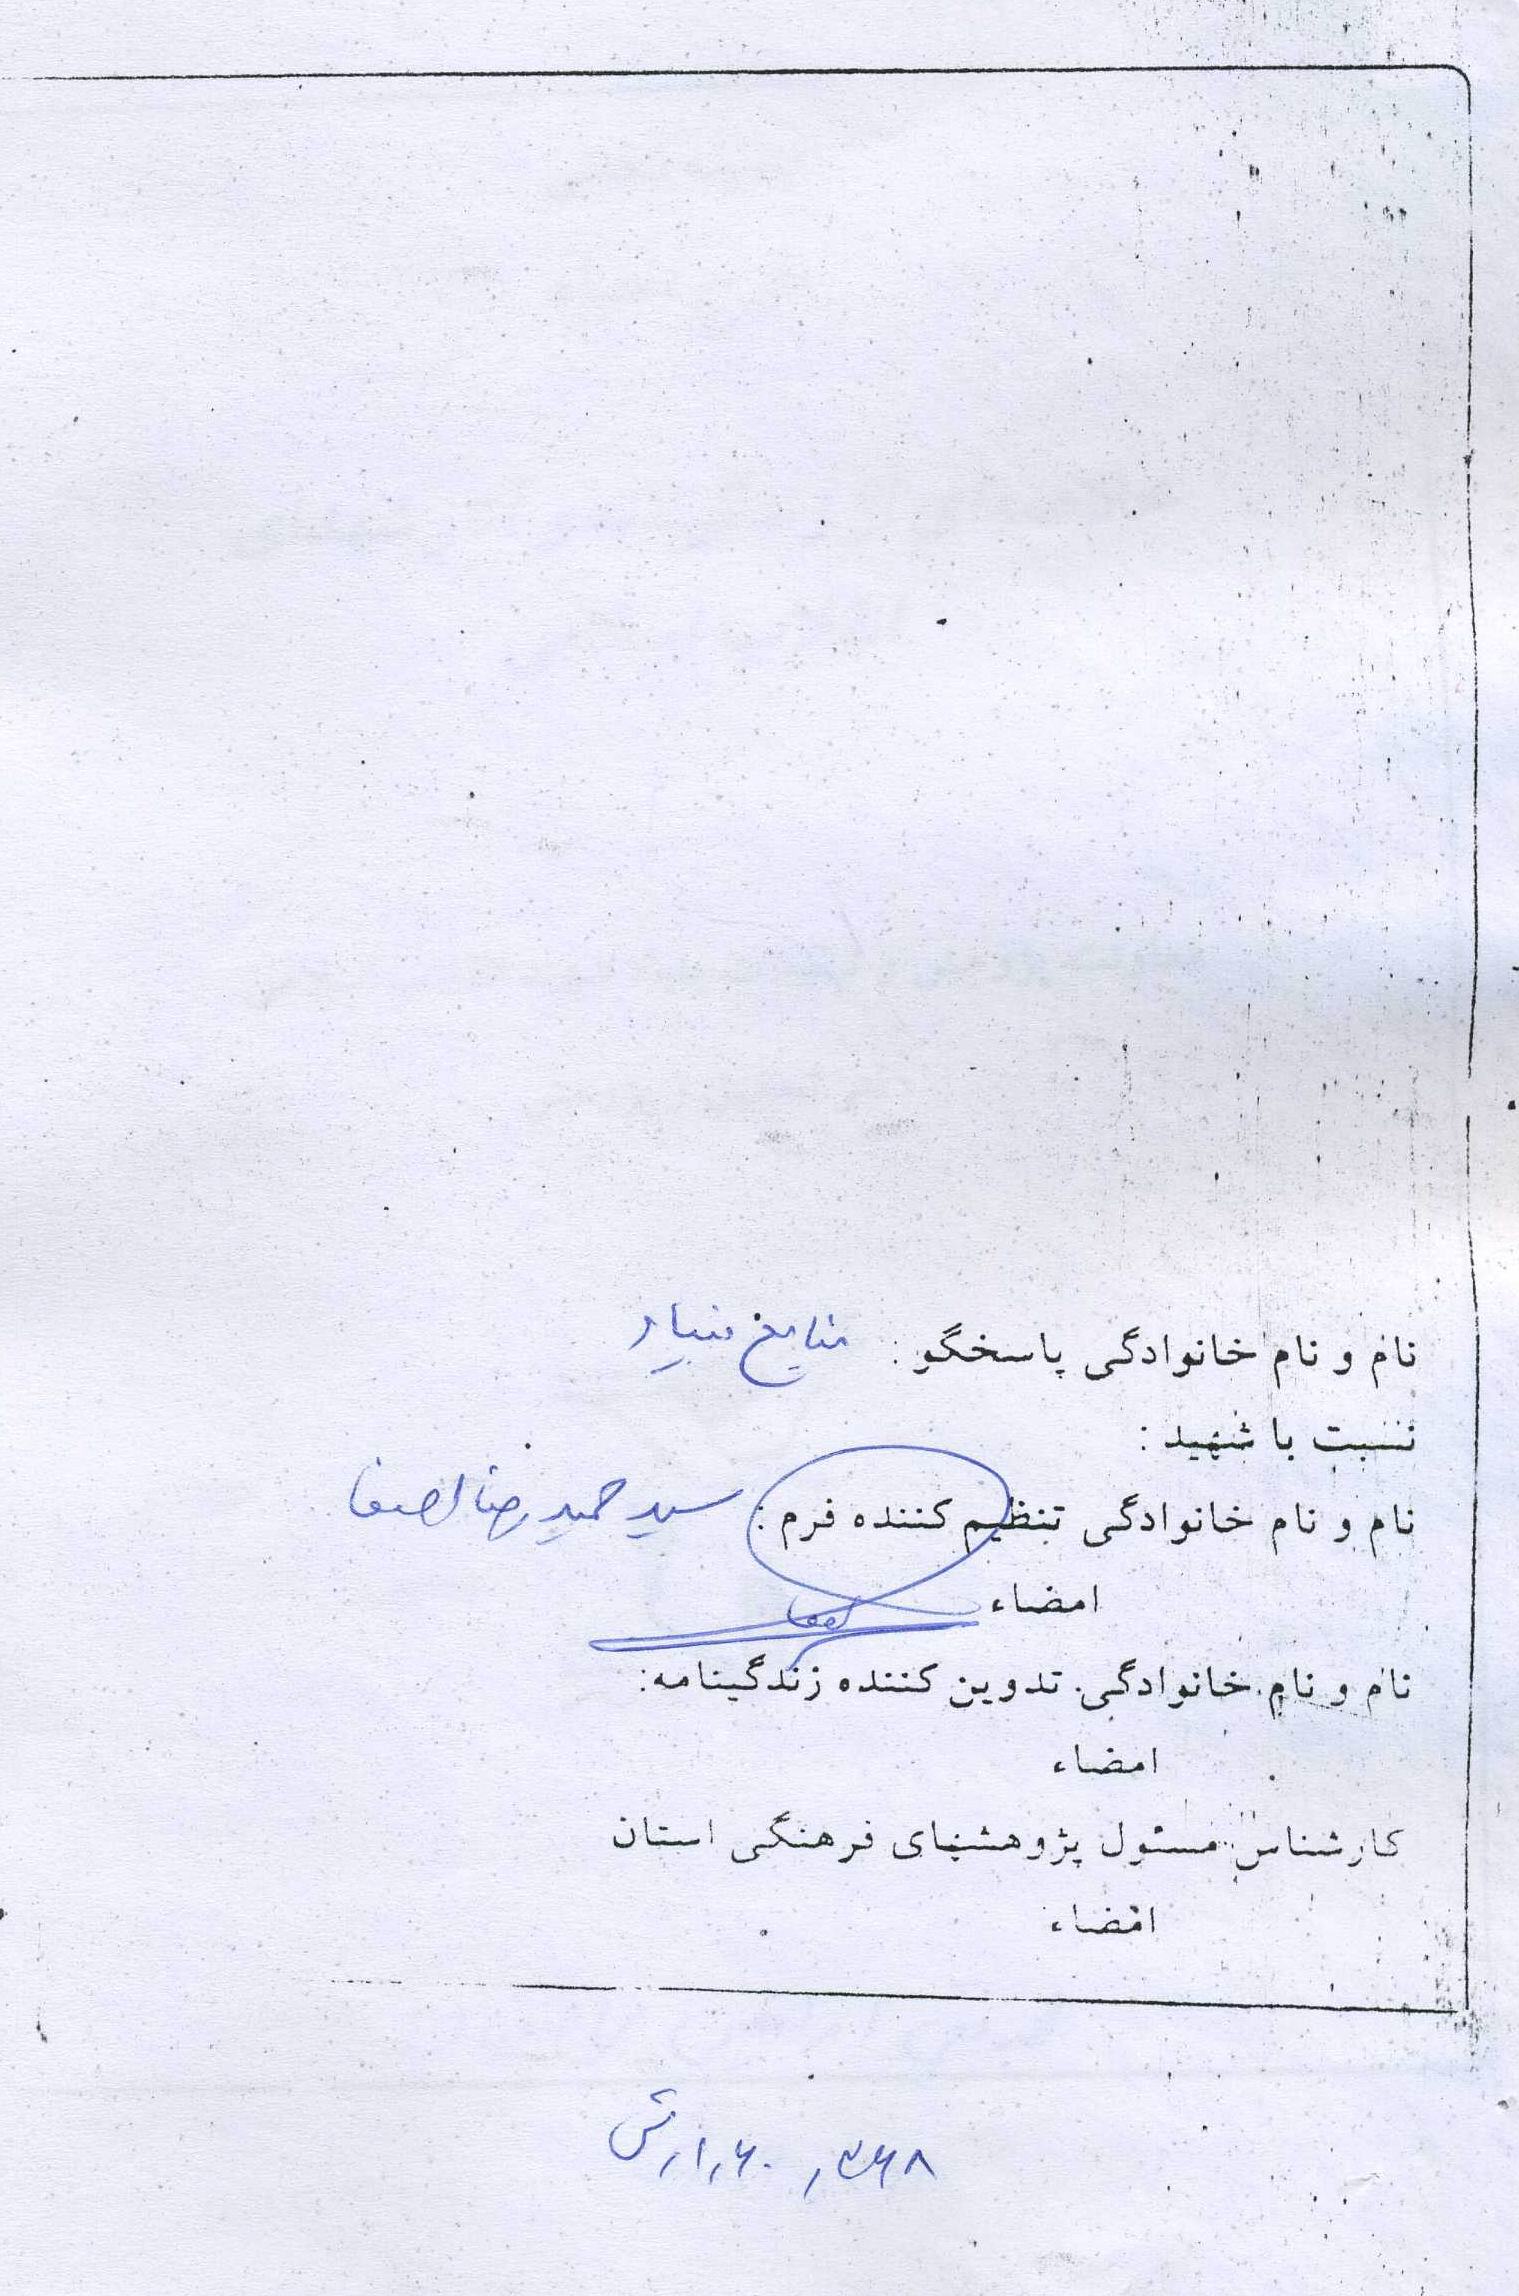 نام و نام خانوادگی پاسخگو :
نسبت با شهید :
نام و نام خانوادگی تنظیم کننده فرم : سید حمید رضا
امضاء
نام و نام خانوادگی تدوین کننده زندگینامه:
امضاء
کارشناس مسئول پژوهشهای فرهنگی استان
امضاء